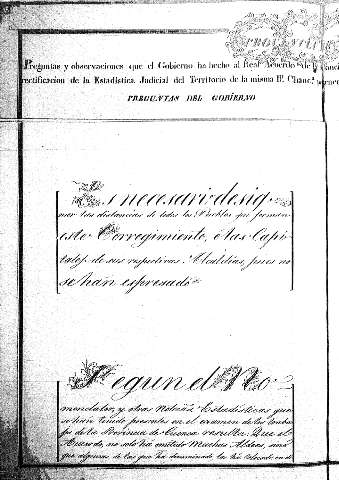 Preguntas y observaciones que el Gobierno ha hecho al Real Acuerdo de la
rectificacion de la Estadística Judicial del Territorio de la misma Rl. Chanc.a
PREGUNTAS DEL GOBIERNO
Es necesario desig-
nar las distancias de todos los Pueblos que forman
este Corregimiento, á las Capi-
tales de sus respectivas Alcaldías, pues no
se han espresado
Segun el No-
menclator, y otras Noticias Estadísticas que
se han tenido presentes en el examen de los trabajos
de la Provincia de Cuenca resulta que el
Acuerdo, no solo ha omitido Muchas Aldeas, sino
que algunas de las que ha denominado, las ha colocado en